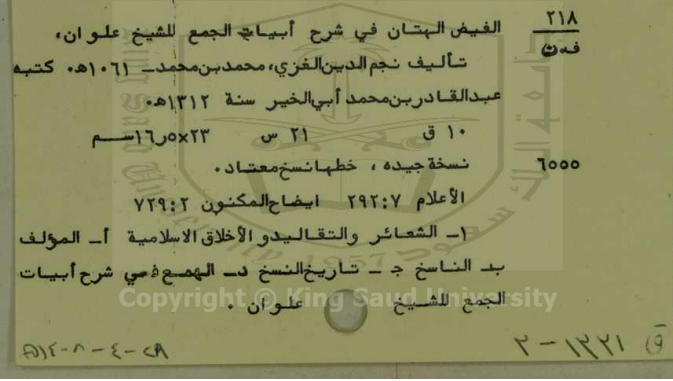 ٢١٨ الفيض الهتان في شرح أبيات الجمع للشيخ علوان،
ف٠ن تأليف نجم الدين الغزي، محمد بن محمد ـ ١٠٦١هـ٠ كتبه
عبدالقادر بن محمد أبي الخير سنة ١٣١٢هـ٠
١٠ ق ٢١ س ٢٣×١٦ر٥سـم
٦٥٥٥ نسخة جيده ، خطها نسخ معتاد٠
الأعلام ٢٩٢:٧ ايضاح المكنون ٧٢٩:٢
١ـ الشعائر والتقاليد و الأخلاق الاسلامية أـ المؤلف
بـ الناسخ جـ ـ تاريخ النسخ دـ الهمع في شرح أبيات
الجمع للشيخ علوان ٠
Copyright © King Saud University
ق ١٣٢١-٢